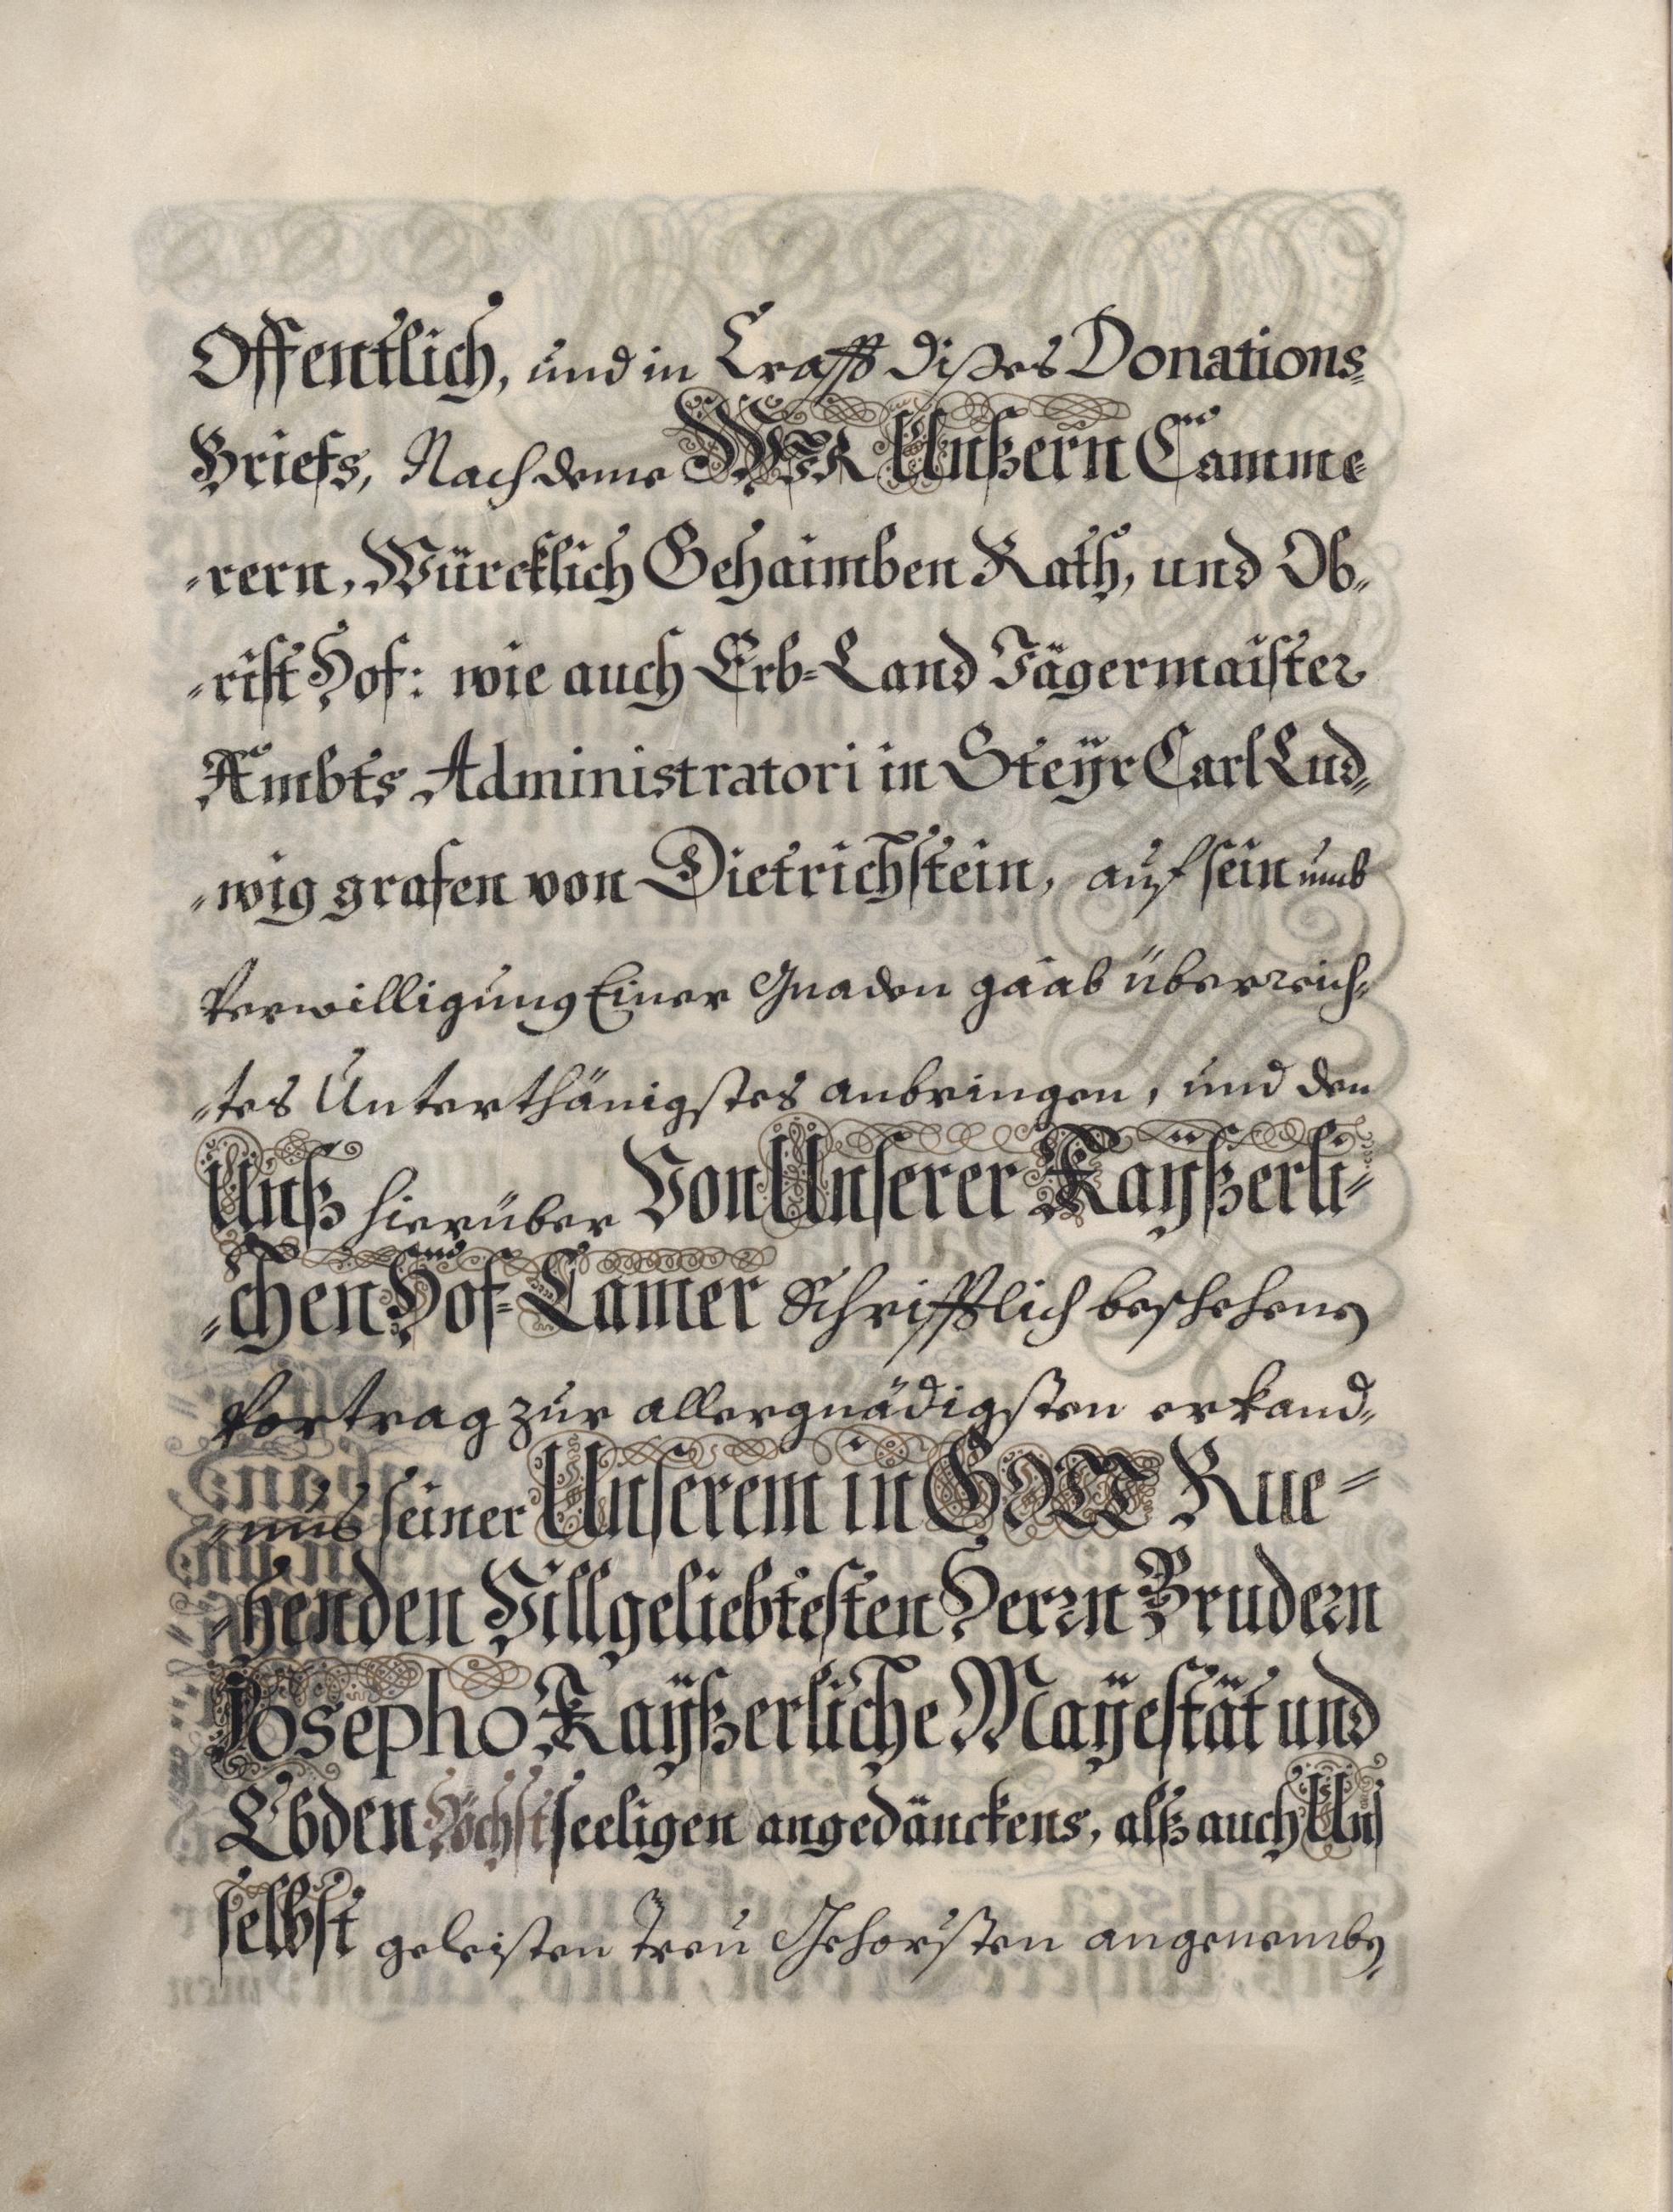 Offentlich, und in Crafft dißes Donations=
Briefs, Nachdeme WIR Unßern Camme=
=rern, Würcklich Gehaimben Rath, und Ob=
=rist Hof: wie auch Erb=Land Jägermaister
Ambts Administratori in Steÿr Carl Lud=
=wig grafen von Dietrichstein, auf sein umb
Verwilligung Einer Gnaden gaab überreich=
=tes Unterthänigstes anbringen, und den
Unß hierüber Von Unserer Kaÿßerli=
=chen Hof=Camer Schrifftlich beschehenen
Vortrag zur allergnädigsten erkand=
=nus seiner Unserem in GOTT Rue=
=henden Villgeliebtesten Herrn Brudern
Josepho Kaÿßerliche Maÿestät und
Lbden Höchstseeligen angedänckens, alß auch Uns
selbst geleisten treu Gehorsten angenemben,